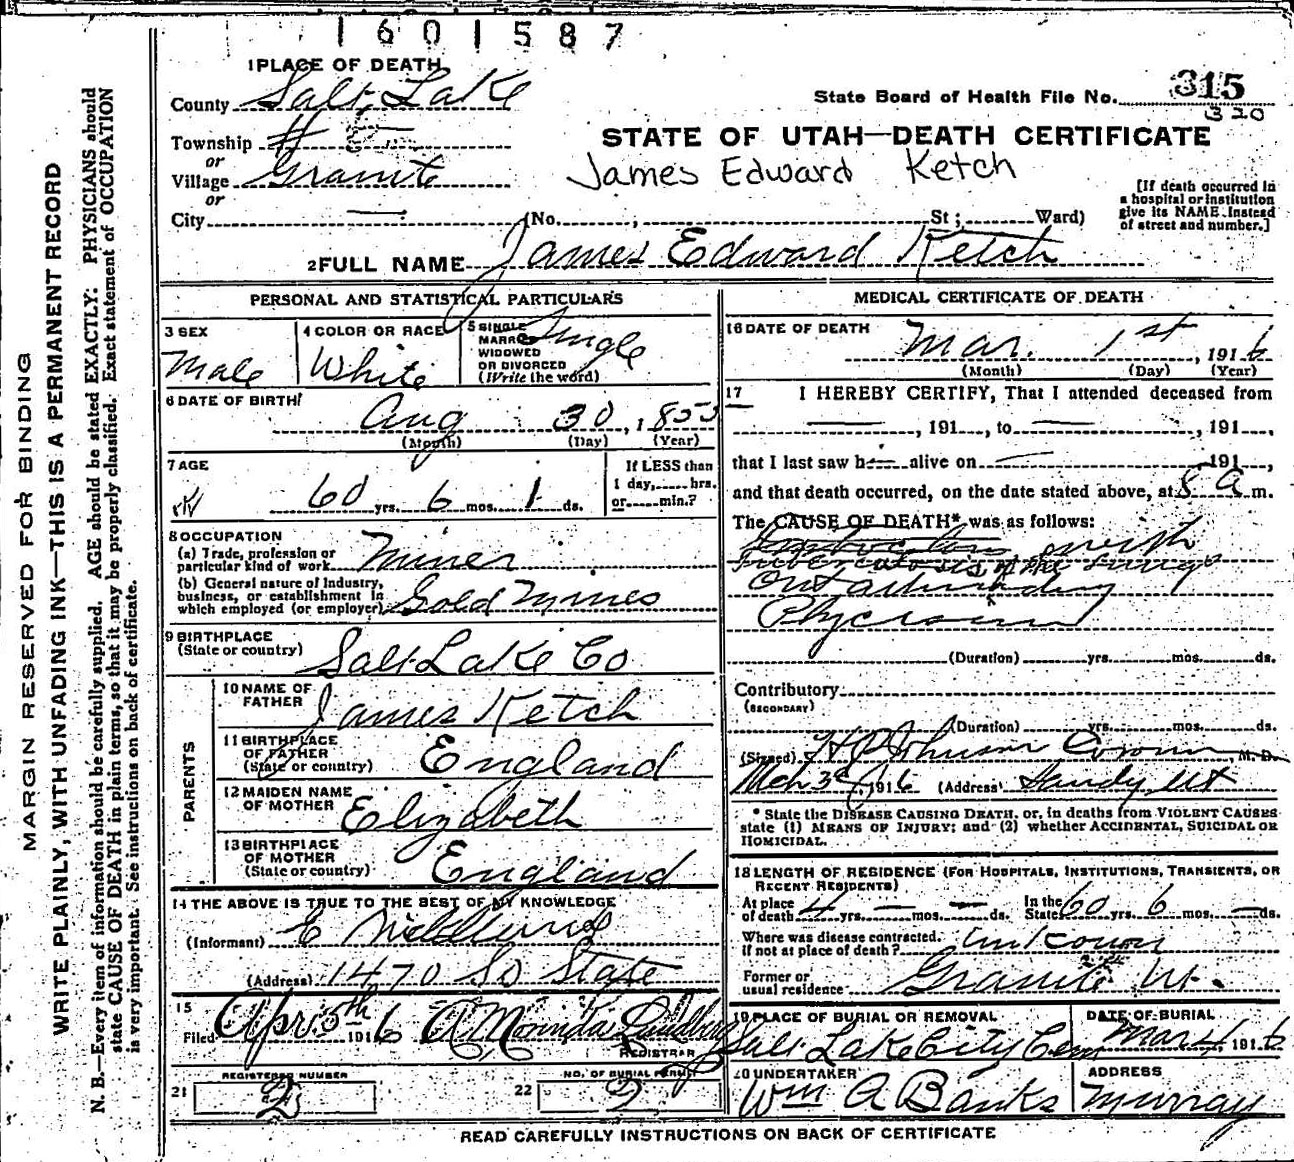 1601587
1 PLACE OF DEATH
County Salt Lake
State Board of Health File No. 315
320
Township # 5
or
Village Granite
or
City —
STATE OF UTAH—DEATH CERTIFICATE
James Edward Ketch
[If death occurred in
a hospital or institution
give its NAME instead
of street and number.]
(No. , St ; Ward)
2 FULL NAME James Edward Ketch
PERSONAL AND STATISTICAL PARTICULARS
3 SEX
Male
4 COLOR OR RACE
White
5 SINGLE
MARRIED
WIDOWED
OR DIVORCED
(Write the word)
Single
6 DATE OF BIRTH
Aug 30, 1855
(Month) (Day) (Year)
7 AGE
60 yrs. 6 mos. 1 ds.
If LESS than
1 day, hrs.
or min.?
8 OCCUPATION
(a) Trade, profession or
particular kind of work Miner
(b) General nature of Industry,
business, or establishment in
which employed (or employer) Gold Mines
9 BIRTHPLACE
(State or country) Salt Lake Co
PARENTS
10 NAME OF
FATHER James Ketch
11 BIRTHPLACE
OF FATHER
(State or country) England
12 MAIDEN NAME
OF MOTHER Elizabeth
13 BIRTHPLACE
OF MOTHER
(State or country) England
14 THE ABOVE IS TRUE TO THE BEST OF MY KNOWLEDGE
(Informant) C
(Address) 1470 So State
15
Filed Apr 5th 1916 A Morinda
REGISTRAR
21 REGISTERED NUMBER
2
22 NO. OF BURIAL PERMIT
2
MEDICAL CERTIFICATE OF DEATH
16 DATE OF DEATH
Mar. 1st, 1916
(Month) (Day) (Year)
17 I HEREBY CERTIFY, That I attended deceased from
—, 191 , to —, 191 ,
that I last saw h— alive on —, 191 ,
and that death occurred, on the date stated above, at 8 a m.
The CAUSE OF DEATH* was as follows:
with
Tuberculosis of the lungs
Out attending
Physician
(Duration) yrs. mos. ds.
Contributory
(SECONDARY)
(Duration) yrs. mos. ds.
(Signed) H P Johnson, M. D.
Mch 3rd, 1916 (Address) Sandy, Ut
* State the DISEASE CAUSING DEATH, or, in deaths from VIOLENT CAUSES
state (1) MEANS OF INJURY; and (2) whether ACCIDENTAL, SUICIDAL OR
HOMICIDAL.
18 LENGTH OF RESIDENCE (FOR HOSPITALS, INSTITUTIONS, TRANSIENTS, OR
RECENT RESIDENTS)
At place
of death 4 yrs. — mos. — ds. In the
State 60 yrs 6 mos. — ds.
Where was disease contracted.
if not at place of death? unknown
Former or
usual residence Granite Ut.
19 PLACE OF BURIAL OR REMOVAL
Salt Lake City Cem
DATE OF BURIAL
Mar 4, 1916
20 UNDERTAKER
Wm A Banks
ADDRESS
Murray
READ CAREFULLY INSTRUCTIONS ON BACK OF CERTIFICATE
MARGIN RESERVED FOR BINDING
WRITE PLAINLY, WITH UNFADING INK—THIS IS A PERMANENT RECORD
N. B.—Every item of information should be carefully supplied. AGE should be stated EXACTLY: PHYSICIANS should
state CAUSE OF DEATH in plain terms, so that it may be properly classified. Exact statement of OCCUPATION
is very important. See instructions on back of certificate.